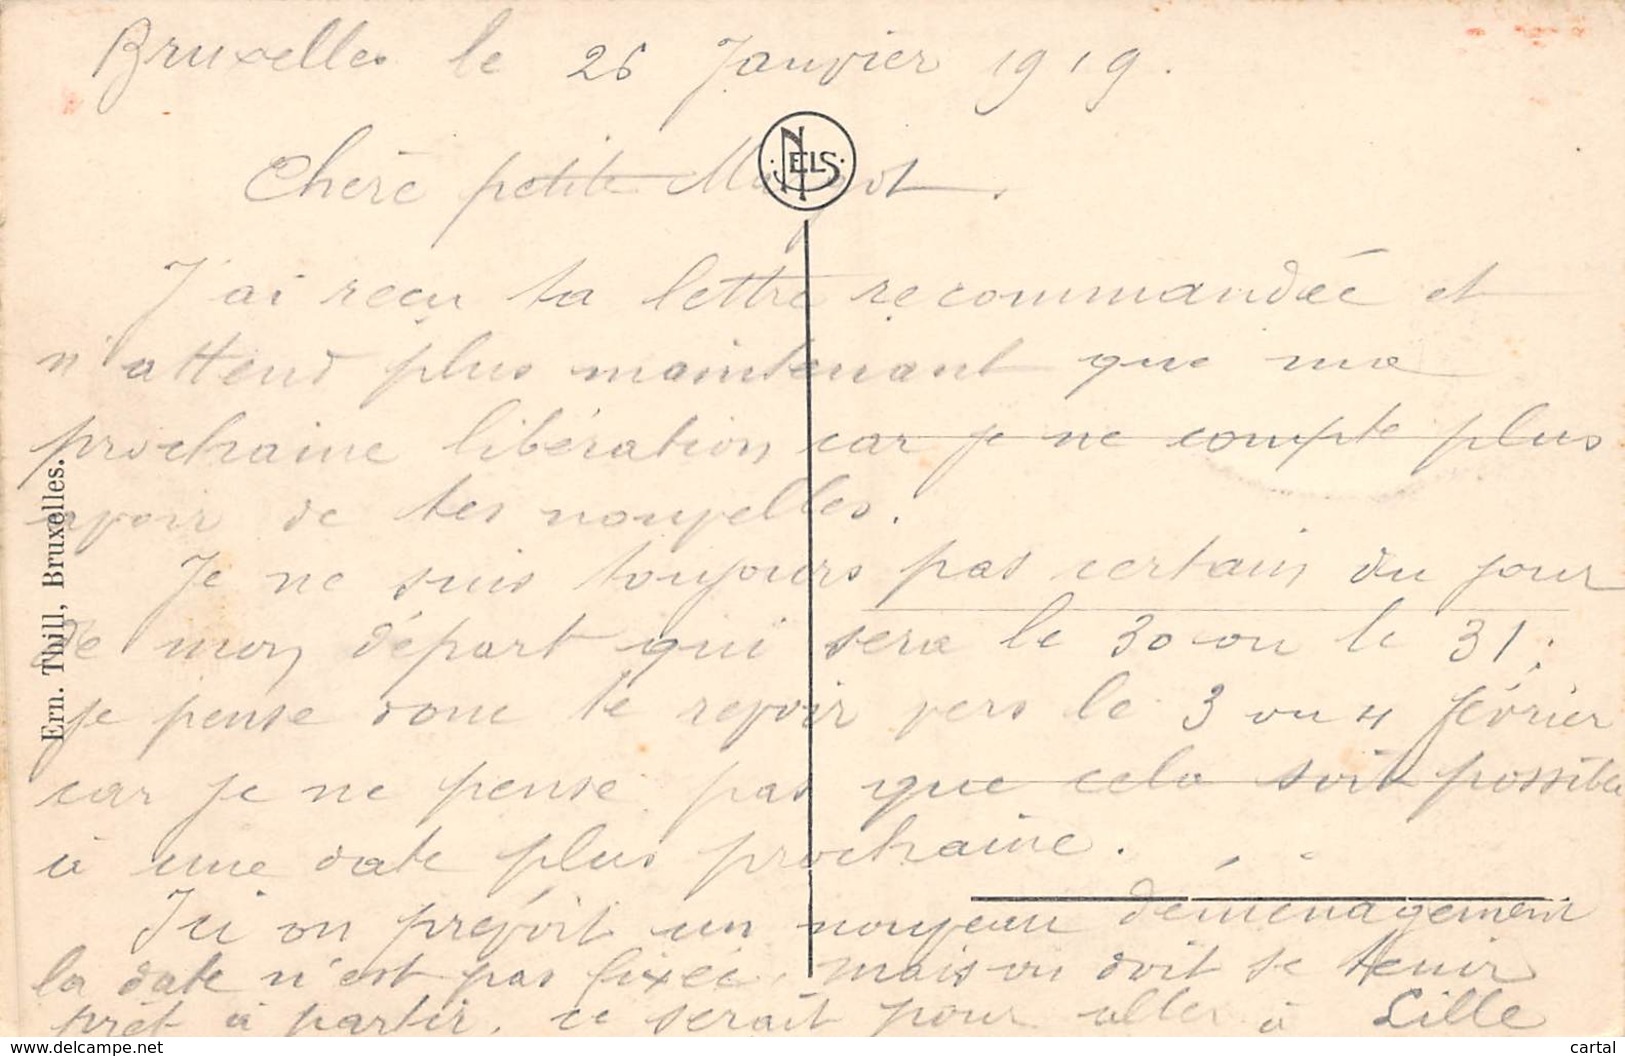 Bruxelles le 26 Janvier 1919.
NELS
Chère petite Margot.
J'ai reçu ta lettre recommandée et
n'attend plus maintenant que ma
prochaine libération car je ne compte plus
avoir de tes nouvelles.
Je ne suis toujours pas certain du jour
de mon départ qui sera le 30 ou le 31;
je pense donc te revoir vers le 3 ou 4 février
car je ne pense pas que cela soit possible
à une date plus prochaine.
Ici on prévoit un nouveau déménagement
la date n'est pas fixée, mais on doit se tenir
prêt à partir, ce serait pour aller à Lille
Ern. Thill, Bruxelles.
www.delcampe.net
cartal